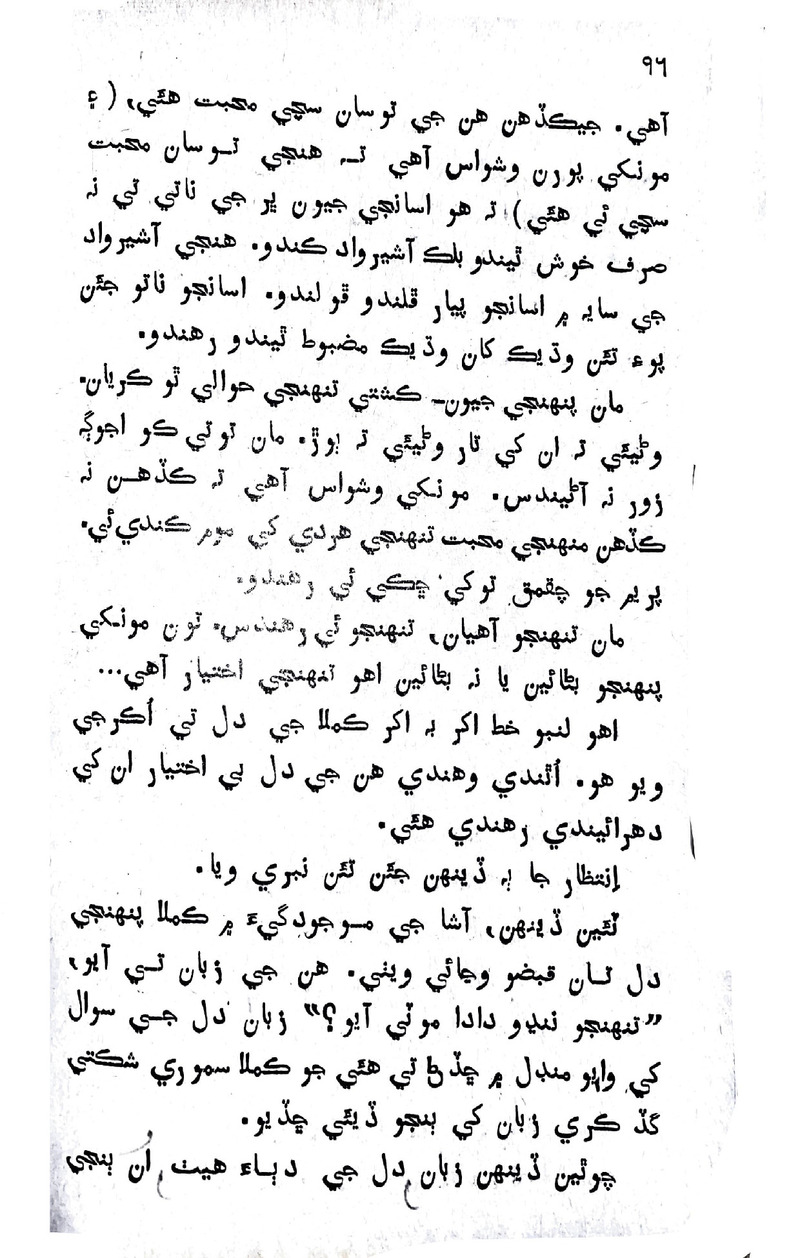 ٩٦
آهي. جيڪڏهن هن جي توسان سچي محبت هئي، (۽
مونکي پورن وشواس آهي تـ هنجي توسان محبت
سچي ئي هئي) تہ هو اسانجي جيون ڀر جي ناتي تي نہ
صرف خوش ٿيندو بلڪ آشيرواد ڪندو. هنجي آشيرواد
جي سايہ ۾ اسانجو پيار ڦلندو ڦولندو. اسانجو ناتو جئن
پوءِ تئن وڌيڪ کان وڌيڪ مضبوط ٿيندو رهندو.
مان پنهنجي جيون- ڪشتي تنهنجي حوالي ٿو ڪريان.
وڻيئي تہ ان کي تار وڻيئي تہ ٻوڙ. مان توتي ڪو اجوڳہ
زور نہ آڻيندس. مونکي وشواس آهي تہ ڪڏهن نہ
ڪڏهن منهنجي محبت تنهنجي هردي کي موم ڪندي ئي.
پريم جو چقمق توکي ڇڪي ئي رهندو.
مان تنهنجو آهيان، تنهنجو ئي رهندس. تون مونکي
پنهنجو بڻائين يا نہ بڻائين اهو تنهنجي اختيار آهي...
اهو لنبو خط اکر بہ اکر ڪملا جي دل تي اُڪرجي
ويو هو. اُٿندي وهندي هن جي دل بي اختيار ان کي
دهرائيندي رهندي هئي.
اِنتظار جا ٻہ ڏينهن جئن تئن نبري ويا.
ٽئين ڏينهن، آشا جي موجودگيءَ ۾ ڪملا پنهنجي
دل تان قبضو وڃائي ويٺي. هن جي زبان تي آيو،
”تنهنجو ننڍو دادا موٽي آيو؟“ زبان دل جي سوال
کي وايو منڊل ۾ ڇڏڻ تي هئي جو ڪملا سموري شڪتي
گڏ ڪري زبان کي ٻنجو ڏيئي ڇڏيو.
چوٿين ڏينهن زبان دل جي دٻاءَ هيٺ اُن ٻنجي